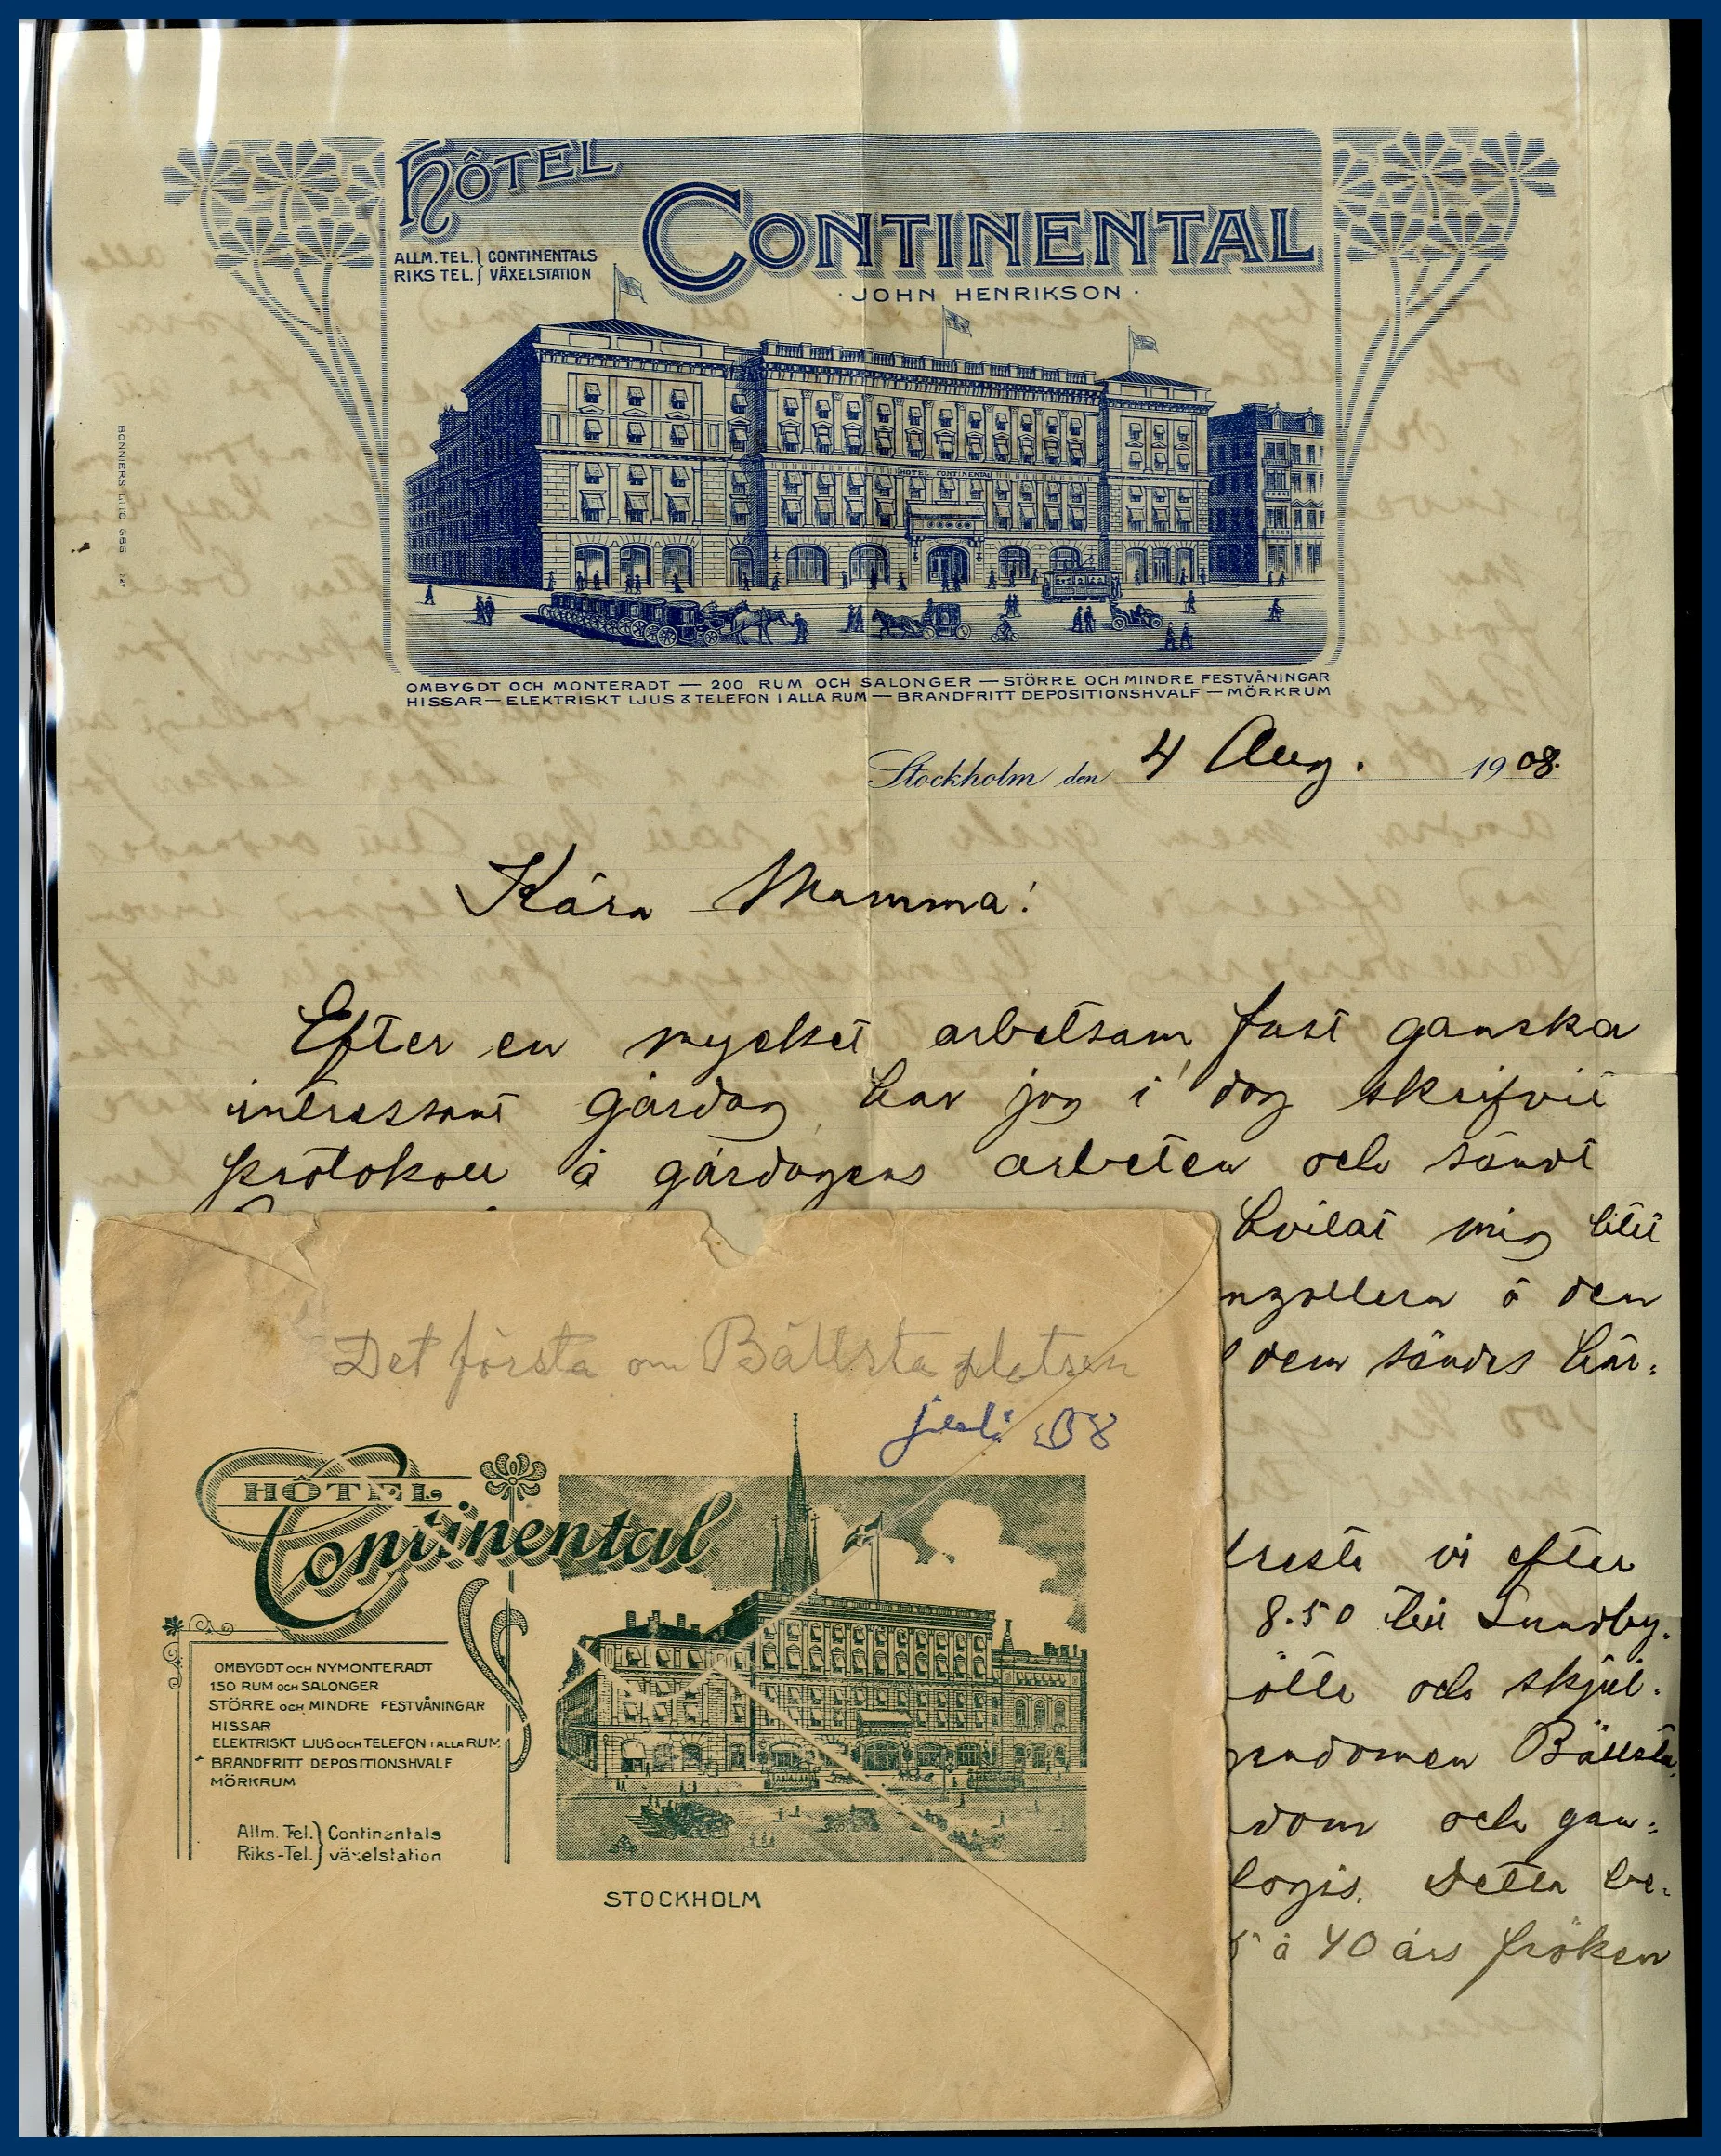 HÔTEL
CONTINENTAL
ALLM. TEL. } CONTINENTALS
RIKS TEL. } VÄXELSTATION
· JOHN HENRIKSON ·
HOTEL CONTINENTAL
BONNIERS LITO 686 247
OMBYGDT OCH MONTERADT — 200 RUM OCH SALONGER — STÖRRE OCH MINDRE FESTVÅNINGAR
HISSAR — ELEKTRISKT LJUS & TELEFON I ALLA RUM — BRANDFRITT DEPOSITIONSHVALF — MÖRKRUM
Stockholm den 4 Aug. 1908.
Kära Mamma!
Efter en mycket arbetsam, fast ganska
intressant gårdag, har jag i dag skrifvit
protokoll å gårdagens arbeten och sändt
hvilat mig litet
å den
dem sändes här:
reste vi efter
8.50 till Sundby.
och skjul.
Bällsta,
dom och gan:
logis. Detta be:
5 à 40 års fröken
Det första om Bällsta platsen
juli 08
HÔTEL
Continental
OMBYGDT OCH NYMONTERADT
150 RUM OCH SALONGER
STÖRRE OCH MINDRE FESTVÅNINGAR
HISSAR
ELEKTRISKT LJUS OCH TELEFON I ALLA RUM
BRANDFRITT DEPOSITIONSHVALF
MÖRKRUM
Allm. Tel. } Continentals
Riks-Tel. } växelstation
STOCKHOLM